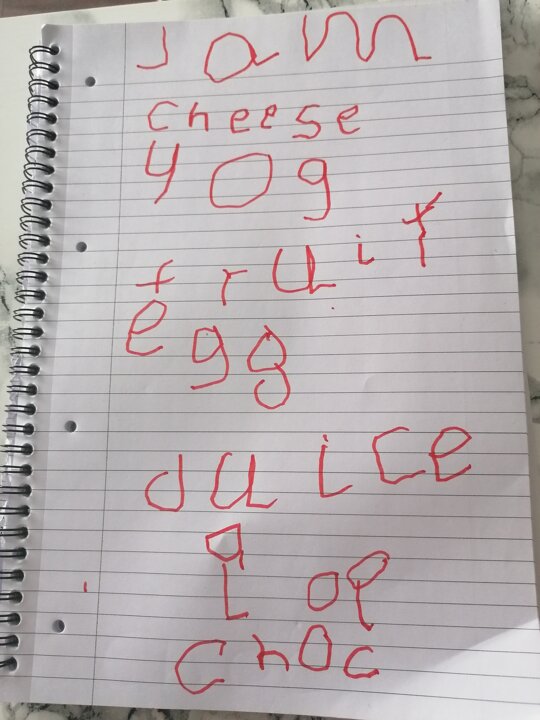 Jam
cheese
yog
fruit
egg
Juice
a
Lop
choc